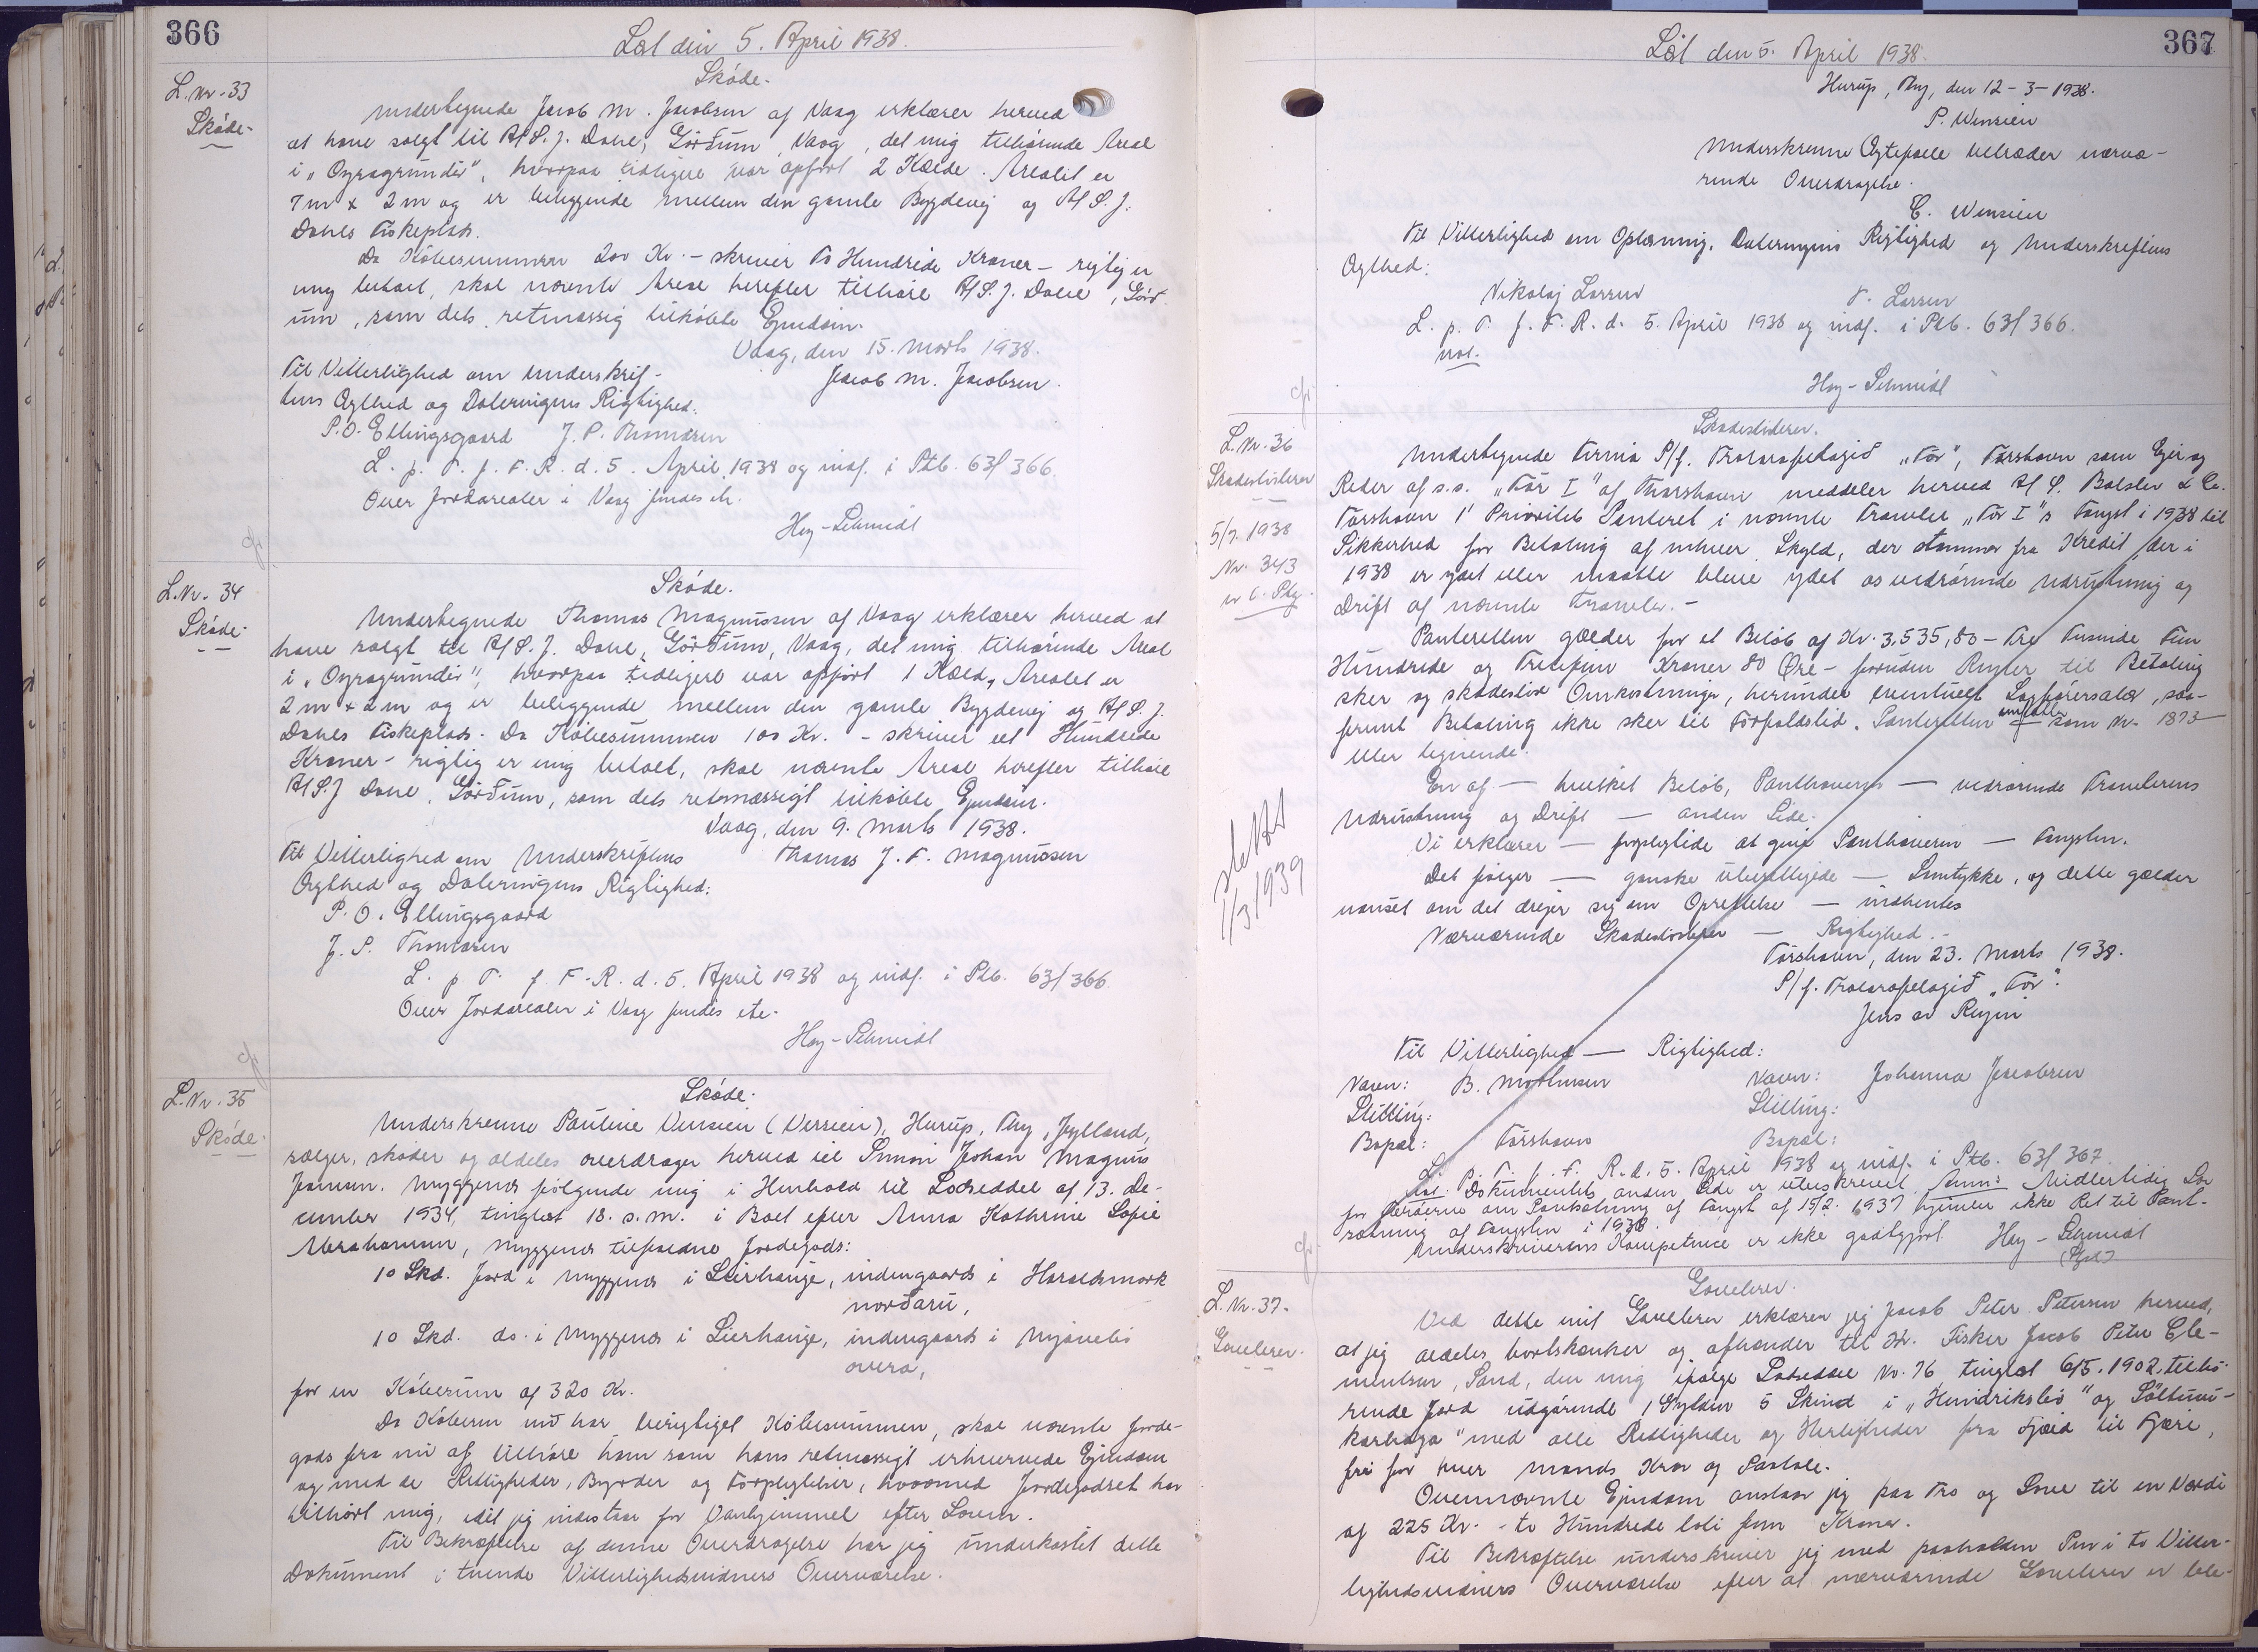 366
Læst den 5. April 1938.
L. Nr. 33
Skøde.
Skøde.
Undertegnede Jacob M. Jacobsen af Vaag erklærer herved
at have solgt til A/S. J. Dahl, Gørðum, Vaag, det mig tilhørende Areal
i "Oyragrundir", hvorpaa tidligere var opført 2 Kælde. Arealet er
7 m x 2 m og er beliggende mellem den gamle Bygdevej og A/S. J.
Dahls Fiskeplads.
Da Købesummen 200 Kr. - skriver To Hundrede Kroner - rigtig er
mig betalt, skal nævnte Areal herefter tilhøre A/S. J. Dahl, Gørð-
um, som dets retmæssig tilkøbte Ejendom.
Vaag, den 15. Marts 1938.
Til Vitterlighed om Underskrif-
Jacob M. Jacobsen.
tens Ægthed og Dateringens Rigtighed.
P.O. Ellingsgaard J. P. Thomasen
L. p. T. f. F. R. d. 5. April 1938 og indf. i Ptb. 63/366.
Over Jordarealer i Vaag findes etc.
Hey-Schmidt
L. Nr. 34
Skøde.
Skøde.
Undertegnede Thomas Magnussen af Vaag erklærer herved at
have solgt til A/S. J. Dahl, Gørðum, Vaag, det mig tilhørende Areal
i "Oyragrundir", hvorpaa tidligere var opført 1 Kæld, Arealet er
2 m x 2 m og er beliggende mellem den gamle Bygdevej og A/S. J.
Dahls Fiskeplads. Da Købesummen 100 Kr. - skriver et Hundrede
Kroner - rigtig er mig betalt, skal nævnte Areal herefter tilhøre
A/S. J Dahl, Gørðum, som dets retmæssigt tilkøbte Ejendom.
Vaag, den 9. Marts 1938.
Til Vitterlighed om Underskriftens
Thomas J. F. Magnussen
Ægthed og Dateringens Rigtighed:
P. O. Ellingsgaard
J. P. Thomasen
L. p. T. f. F. R. d. 5. April 1938 og indf. i Ptb. 63/366.
Over Jordarealer i Vaag findes etc.
Hey-Schmidt
L. Nr. 35
Skøde.
Skøde.
Underskrevne Pauline Vensien (Versien), Hurup, Thy, Jylland,
sælger, skøder og aldeles overdrager herved til Simon Johan Magnus
Joensen, Myggenes følgende mig i Henhold til Lodseddel af 13. De-
cember 1934, tinglæst 18. s.m. i Boet efter Anna Kathrine Sofie
Abrahamsen, Myggenes tilfaldne Jordegods:
10 Skd. Jord i Myggenes i Lierhauje, indengaards i Haraldsmørk
norðaru,
10 Skd. do. i Myggenes i Lierhauje, indengaards i
overa,
for en Købesum af 320 Kr.
Da Køberen nu har berigtiget Købesummen, skal nævnte Jorde-
gods fra nu af tilhøre ham som hans retmæssigt erhvervede Ejendom
og med de Rettigheder, Byrder og Forpligtelser, hvormed Jordegodset har
tilhørt mig, idet jeg indestaar for Vanhjemmel efter Loven.
Til Bekræftelse af denne Overdragelse har jeg underkastet dette
Dokument i tvende Vitterlighedsvidners Overværelse.
367
Læst den 5. April 1938.
Hurup, Thy, den 12-3-1938.
P. Wensien
Underskrevne Ægtefælle tiltræder nærvæ-
rende Overdragelse.
C. Wensien
Til Vitterlighed om Oplæsning, Dateringens Rigtighed og Underskriftens
Ægthed:
Nikolaj Larsen
T. Larsen
L. p. T. f. F. R. d. 5. April 1938 og indf. i Ptb. 63/366.
Hey-Schmidt
L. Nr. 36
Skadesløsbrev
5/7. 1938
Nr. 343
Skadesløsbrev.
Undertegnede Firma P/f. Trolarafelagið "Tór", Tórshavn som Ejer og
Reder af s.s. "Tór I" af Thorshavn meddeler herved A/S. Balslev & Co.
Tórshavn 1' Prioritets Panteret i nævnte Trawler "Tór I"s Fangst i 1938 til
Sikkerhed for Betaling af enhver Skyld, der stammer fra Kredit, der i
1938 er ydet eller maatte blive ydet os vedrørende Udrustning og
Drift af nævnte Trawler. -
Panteretten gælder for et Beløb af Kr. 3,535,80 - Tre Tusinde Fem
Hundrede og Tredive fem Kroner 80 Øre - foruden Renter til Betaling
sker og skadesløs Omkostninger, herunder eventuelt Sagførersalær, saa-
fremt Betaling ikke sker til Forfaldstid. Panteretten omfatter som Nr. 1873
eller lignende.
En af — hvilket Beløb, Panthaveren — vedrørende Trawlerens
Udrustning og Drift — anden Side.
Vi erklærer — forpligtede at give Panthaveren — Fangsten.
Det følger — ganske ubeføjede — Samtykke, og dette gælder
uanset om det drejer sig om Oprettelse — indhentes
Nærværende Skadesløsbrev — Rigtighed. -
Tórshavn, den 23. Marts 1938.
P/f. Trolarafelagið "Tór".
Jens av Reyni
Slettet
1/3 1939
Til Vitterlighed — Rigtighed:
Navn: B. Mortensen
Navn: Johanna Jacobsen
Stilling:
Stilling:
Bopæl: Tórshavn
Bopæl:
L. p. T. f. F. R. d. 5. April 1938 og indf. i Ptb. 63/367
Dokumentets anden Side er ubeskrevet. Anm: Midlertidig Lov
for Færøerne om Pantsætning af Fangst af 15/2. 1937 hjemler ikke Ret til Pant-
sætning af Fangsten i 1938.
Underskriverens Kompetence er ikke godtgjort Hey-Schmidt
L. Nr. 37.
Gavebrev.
Gavebrev.
Ved dette mit Gavebrev erklærer jeg Jacob Peter Petersen herved,
at jeg aldeles bortskænker og afhænder til Hr. Fisker Jacob Peter Cle-
mentsen, Sand, den mig ifølge Lodseddel Nr. 76 tinglæst 6/5. 1902 tilhø-
rende Jord udgørende 1 Gylden 5 Skind i "Hendriksbø" og
" med alle Rettigheder og Herligheder fra Fjæld til Fjære,
fri for hver Mands Krav og Paatale.
Ovennævnte Ejendom anslaar jeg paa Tro og Love til en Værdi
af 225 Kr. - to Hundrede toti fem Kroner.
Til Bekræftelse underskriver jeg med paaholden Pen i to Vitter-
lighedsvidners Overværelse efter at nærværende Gavebrev er ble-